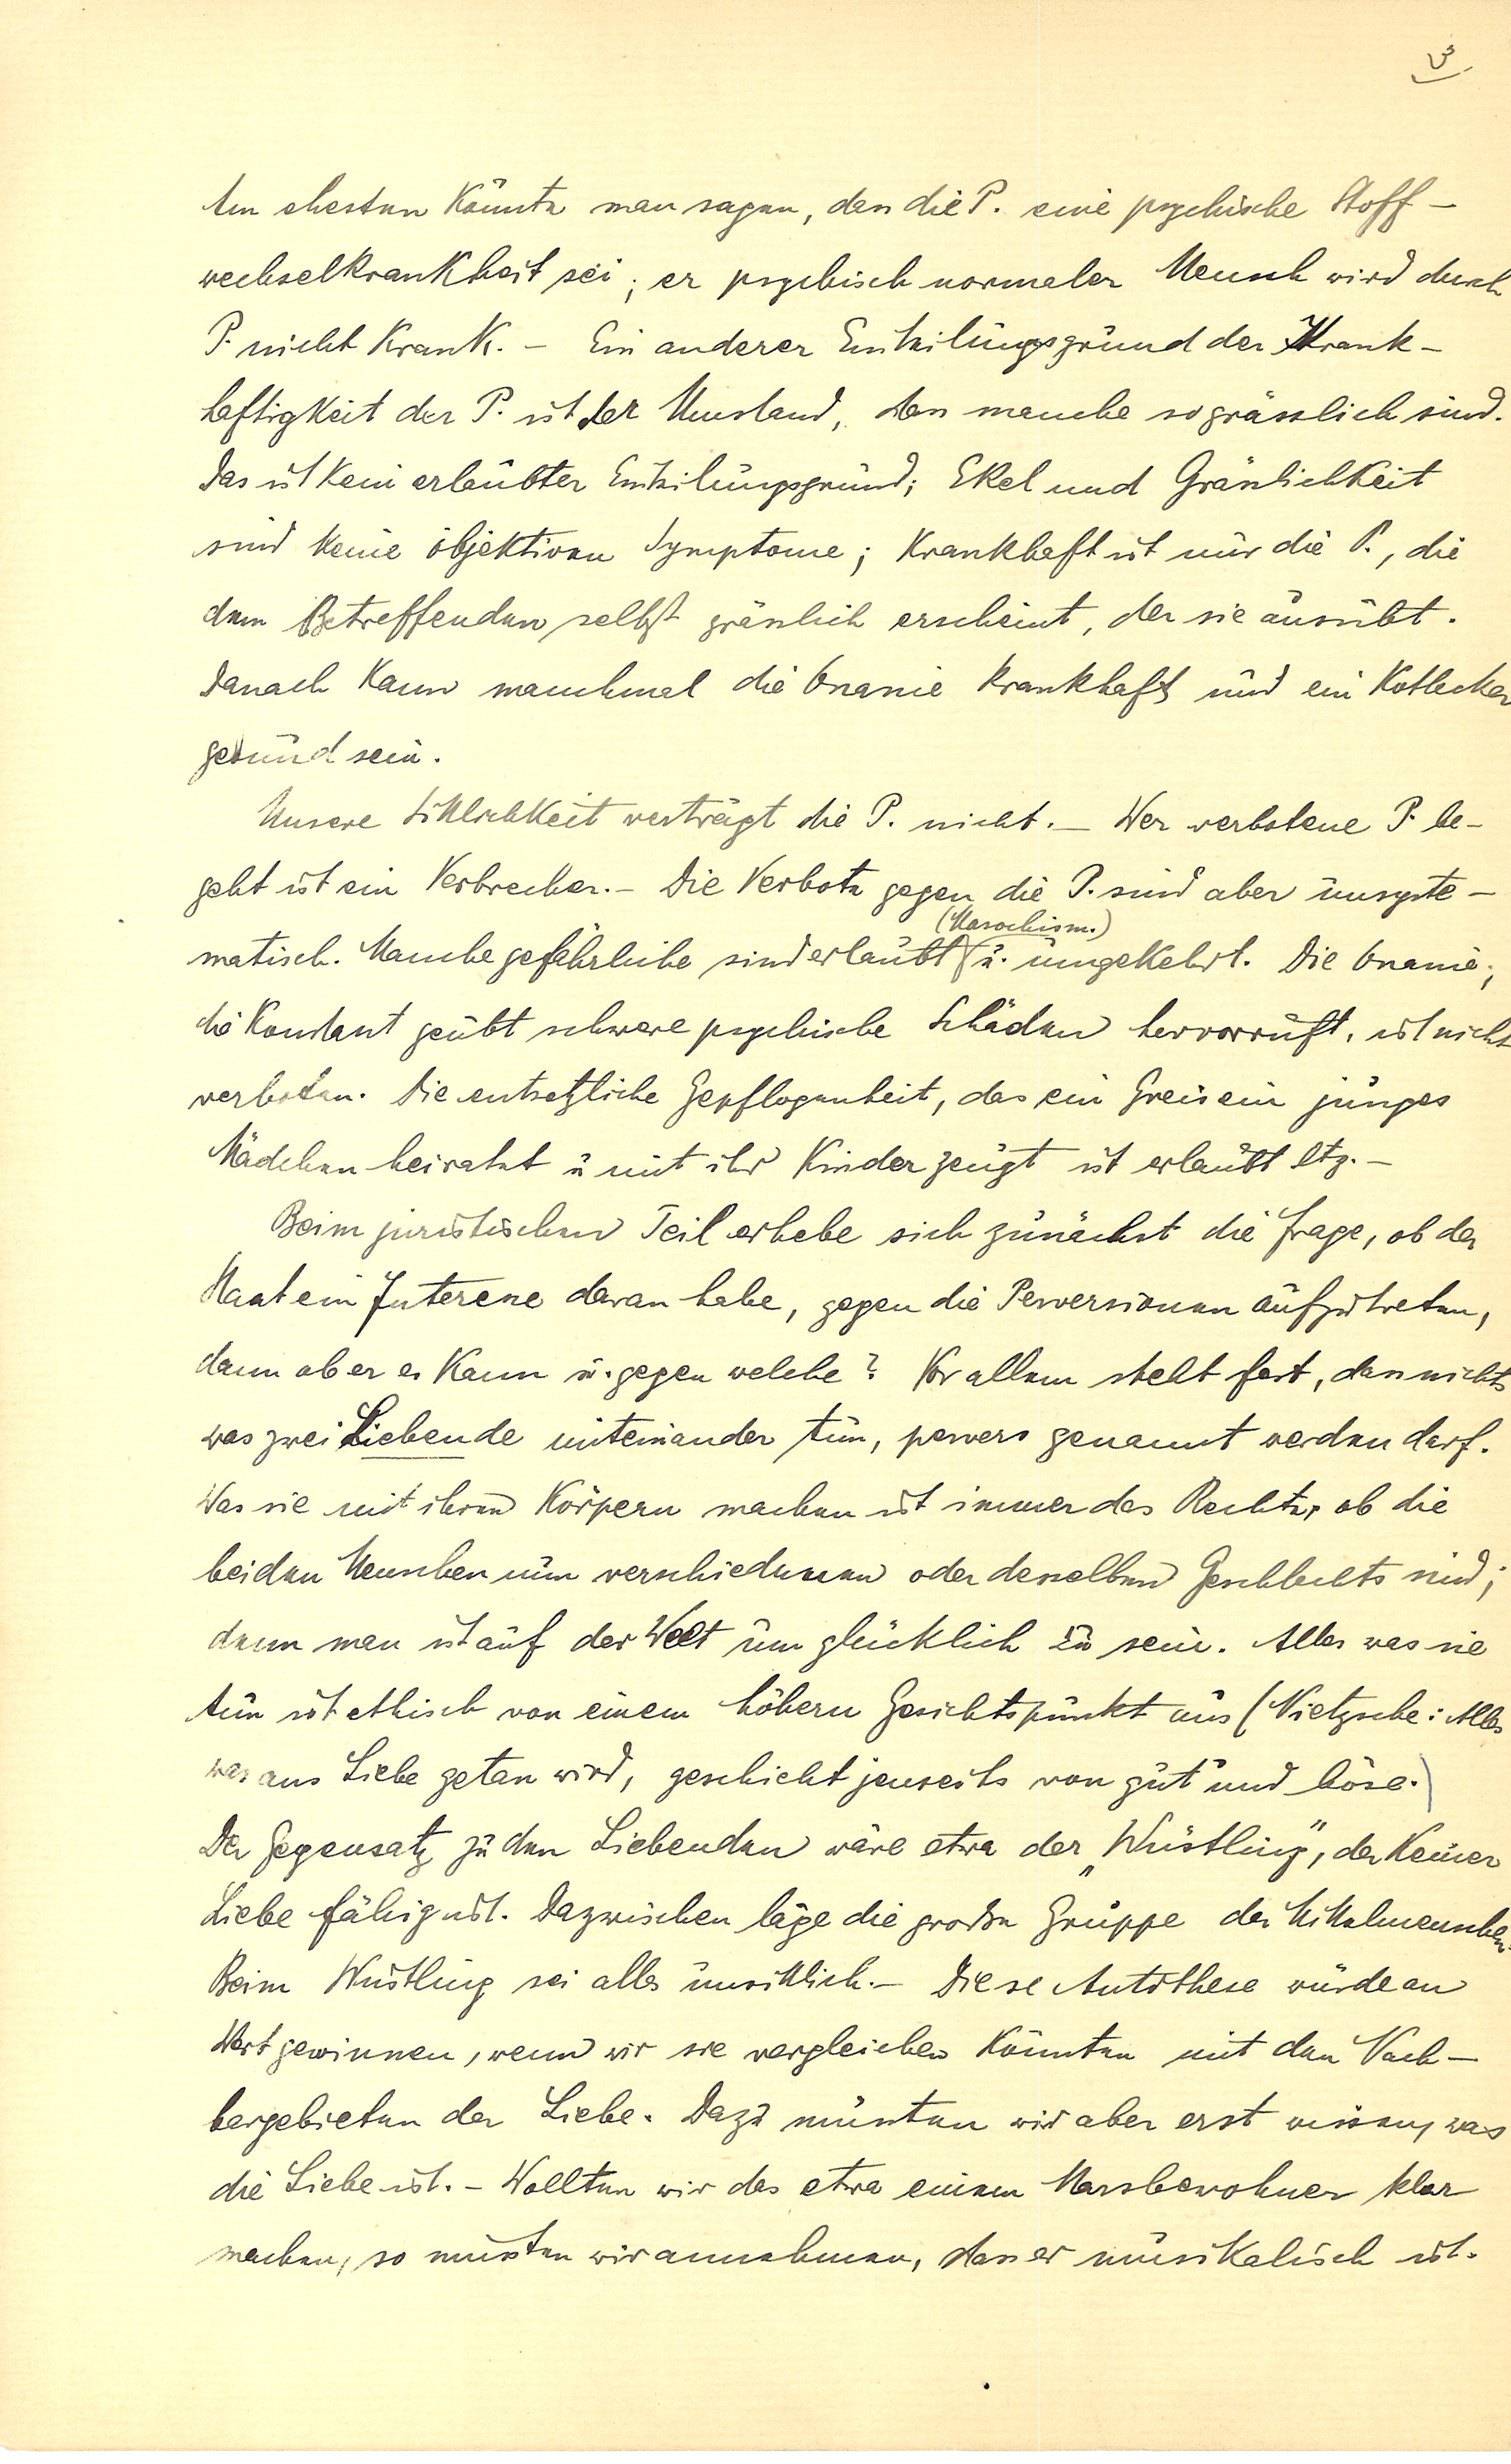 3
Am ehesten könnte man sagen, dass die P. eine psychische Stoff-
wechselkrankheit sei; er psychisch normaler Mensch wird durch
P. nicht krank. - Ein anderer Einteilungsgrund der Krank-
haftigkeit der P. ist der Umstand, dass manche so grässlich sind.
Das ist kein erlaubter Einteilungsgrund; Ekel und Grässlichkeit
sind keine objektiven Symptome; krankhaft ist nur die P., die
dem Betreffenden selbst grässlich erscheint, der sie ausübt.
Danach kann manchmal die Onanie krankhaft und ein Kotlecker
gesund sein.
Unsere Sittlichkeit verträgt die P. nicht. - Wer verbotene P. be-
geht ist ein Verbrecher. - Die Verbote gegen die P. sind aber unsyste-
(Masochism.)
matisch. Manche gefährliche sind erlaubt u. umgekehrt. Die Onanie,
die konstant geübt schwere psychische Schäden hervorruft, ist nicht
verboten. Die entsetzliche Gepflogenheit, dass ein Greis ein junges
Mädchen heiratet u mit ihr Kinder zeugt ist erlaubt etz. -
Beim juristischen Teil erhebe sich zunächst die Frage, ob der
Staat ein Interesse daran habe, gegen die Perversionen aufzutreten,
dann ob er es kann u. gegen welche? Vor allem steht fest, dass nichts
was zwei Liebende miteinander tun, pervers genannt werden darf.
Was sie mit ihren Körpern machen ist immer das Rechte, ob die
beiden Menschen nun verschiedenen oder desselben Geschlechts sind;
denn man ist auf der Welt um glücklich zu sein. Alles was sie
tun ist ethisch von einem höhern Gesichtspunkt aus (Nietzsche: Alles
was aus Liebe getan wird, geschieht jenseits von gut und böse.)
Der Gegensatz zu den Liebenden wäre etwa der „Wüstling", der keiner
Liebe fähig ist. Dazwischen läge die grosse Gruppe der Mittelmenschen.
Beim Wüstling sei alles unsittlich. - Diese Antithese würde an
Wert gewinnen, wenn wir sie vergleichen könnten mit den Nach-
bargebieten der Liebe. Dazu müssten wir aber erst wissen, was
die Liebe ist. - Wollten wir das etwa einem Marsbewohner klar
machen, so müssten wir annehmen, dass er musikalisch ist.